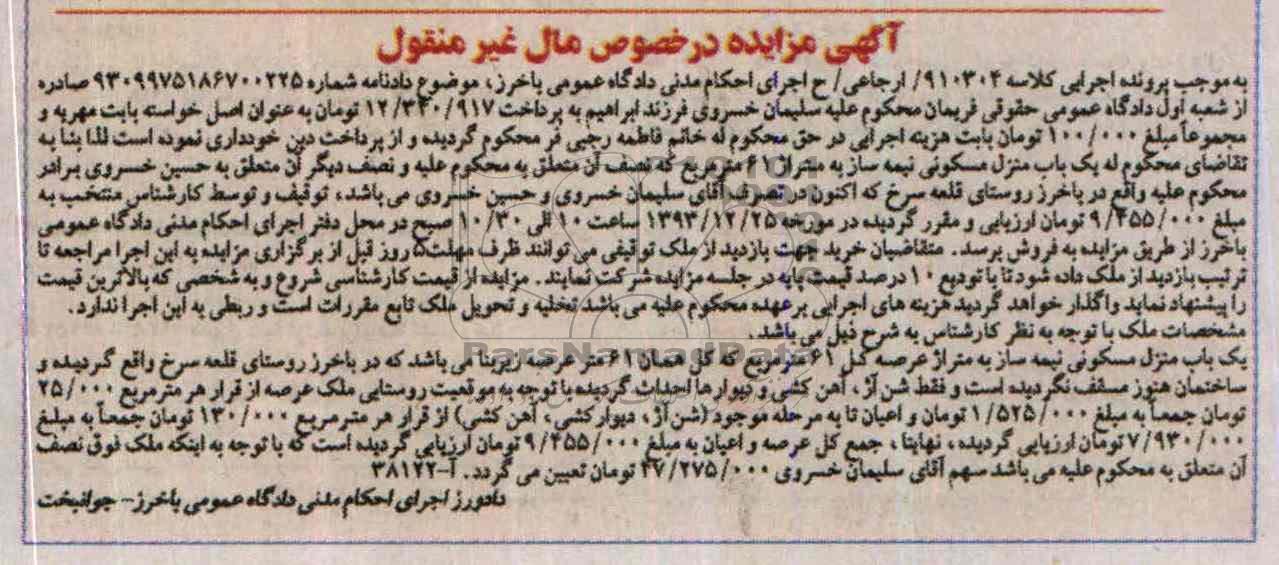 آگهی مزایده درخصوص مال غیر منقول
به موجب پرونده اجرایی کلاسه ۹۱۰۳۰۴/ ارجاعی/ ح اجرای احکام مدنی دادگاه عمومی باخرز، موضوع دادنامه شماره ۹۳۰۹۹۷۵۱۸۶۷۰۰۲۲۵ صادره
از شعبه اول دادگاه عمومی حقوقی فریمان محکوم علیه سلیمان خسروی فرزند ابراهیم به پرداخت ۱۲/۳۴۰/۹۱۷ تومان به عنوان اصل خواسته بابت مهریه و
مجموعاً مبلغ ۱۰۰/۰۰۰ تومان بابت هزینه اجرایی در حق محکوم له خانم فاطمه رجبی فر محکوم گردیده و از پرداخت دین خودداری نموده است لذا بنا به
تقاضای محکوم له یک باب منزل مسکونی نیمه ساز به متراژ ۶۱ مترمربع که نصف آن متعلق به محکوم علیه و نصف دیگر آن متعلق به حسین خسروی برادر
محکوم علیه واقع در باخرز روستای قلعه سرخ که اکنون در تصرف آقای سلیمان خسروی و حسین خسروی می باشد، توقیف و توسط کارشناس منتخب به
مبلغ ۹/۴۵۵/۰۰۰ تومان ارزیابی و مقرر گردیده در مورخه ۱۳۹۳/۱۲/۲۵ ساعت ۱۰ الی ۱۰/۳۰ صبح در محل دفتر اجرای احکام مدنی دادگاه عمومی
باخرز از طریق مزایده به فروش برسد. متقاضیان خرید جهت بازدید از ملک توقیفی می توانند ظرف مهلت ۵ روز قبل از برگزاری مزایده به این اجرا مراجعه تا
ترتیب بازدید از ملک داده شود تا با تودیع ۱۰ درصد قیمت پایه در جلسه مزایده شرکت نمایند. مزایده از قیمت کارشناسی شروع و به شخصی که بالاترین قیمت
را پیشنهاد نماید واگذار خواهد گردید هزینه های اجرایی بر عهده محکوم علیه می باشد تخلیه و تحویل ملک تابع مقررات است و ربطی به این اجرا ندارد.
مشخصات ملک با توجه به نظر کارشناس به شرح ذیل می باشد.
یک باب منزل مسکونی نیمه ساز به متراژ عرصه کل ۶۱ مترمربع که کل همان ۶۱ متر عرصه زیربنا می باشد که در باخرز روستای قلعه سرخ واقع گردیده و
ساختمان هنوز مسقف نگردیده است و فقط شن آژ، آهن کشی و دیوارها احداث گردیده با توجه به موقعیت روستایی ملک عرصه از قرار هر مترمربع ۲۵/۰۰۰
تومان جمعاً به مبلغ ۱/۵۲۵/۰۰۰ تومان و اعیان تا به مرحله موجود (شن آژ، دیوارکشی، آهن کشی) از قرار هر مترمربع ۱۳۰/۰۰۰ تومان جمعاً به مبلغ
۷/۹۳۰/۰۰۰ تومان ارزیابی گردیده، نهایتا، جمع کل عرصه و اعیان به مبلغ ۹/۴۵۵/۰۰۰ تومان ارزیابی گردیده است که با توجه به اینکه ملک فوق نصف
آن متعلق به محکوم علیه می باشد سهم آقای سلیمان خسروی ۴۷/۲۷۵/۰۰۰ تومان تعیین می گردد. آ-۳۸۱۲۲
دادورز اجرای احکام مدنی دادگاه عمومی باخرز- جوانبخت
ParsNamadData